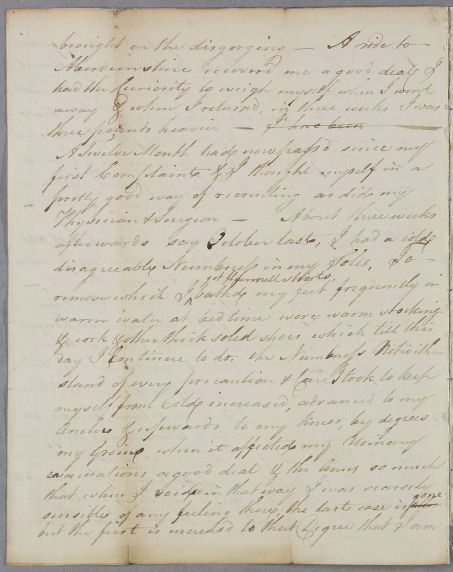 brought on the disgorging — A ride to
Aberdeenshire recovered me a good deal, I
had the Curiosity to weigh myself when I went
away & when I returned, in three weeks I was
three pounds heavier —
A Twelve Month had now pass'd since my
first Complaint & I thought myself in a
pretty good way of recruiting as did my
Physician & Surgeon — About three weeks
afterwards say October last, I had a cold
disagreeable Numbness in my Soles, To
remove which I bathed my feet frequently in
warm water at bed time wore warm stocking
& cork & other thick soled shoes which till this
day I Continue to do, the Numbness Notwith-
stand of every precaution & Care I took to keep
myself from Cold increased, advanced to my
Ancles & upwards to my knees, by degrees
my Groins when it affected my Urinary
evacuations a good deal & the Anus so much
that when I voided in that way I was scarcely
sensible of any feeling there, the last case is gone
but the first is increased to that Degree that I am